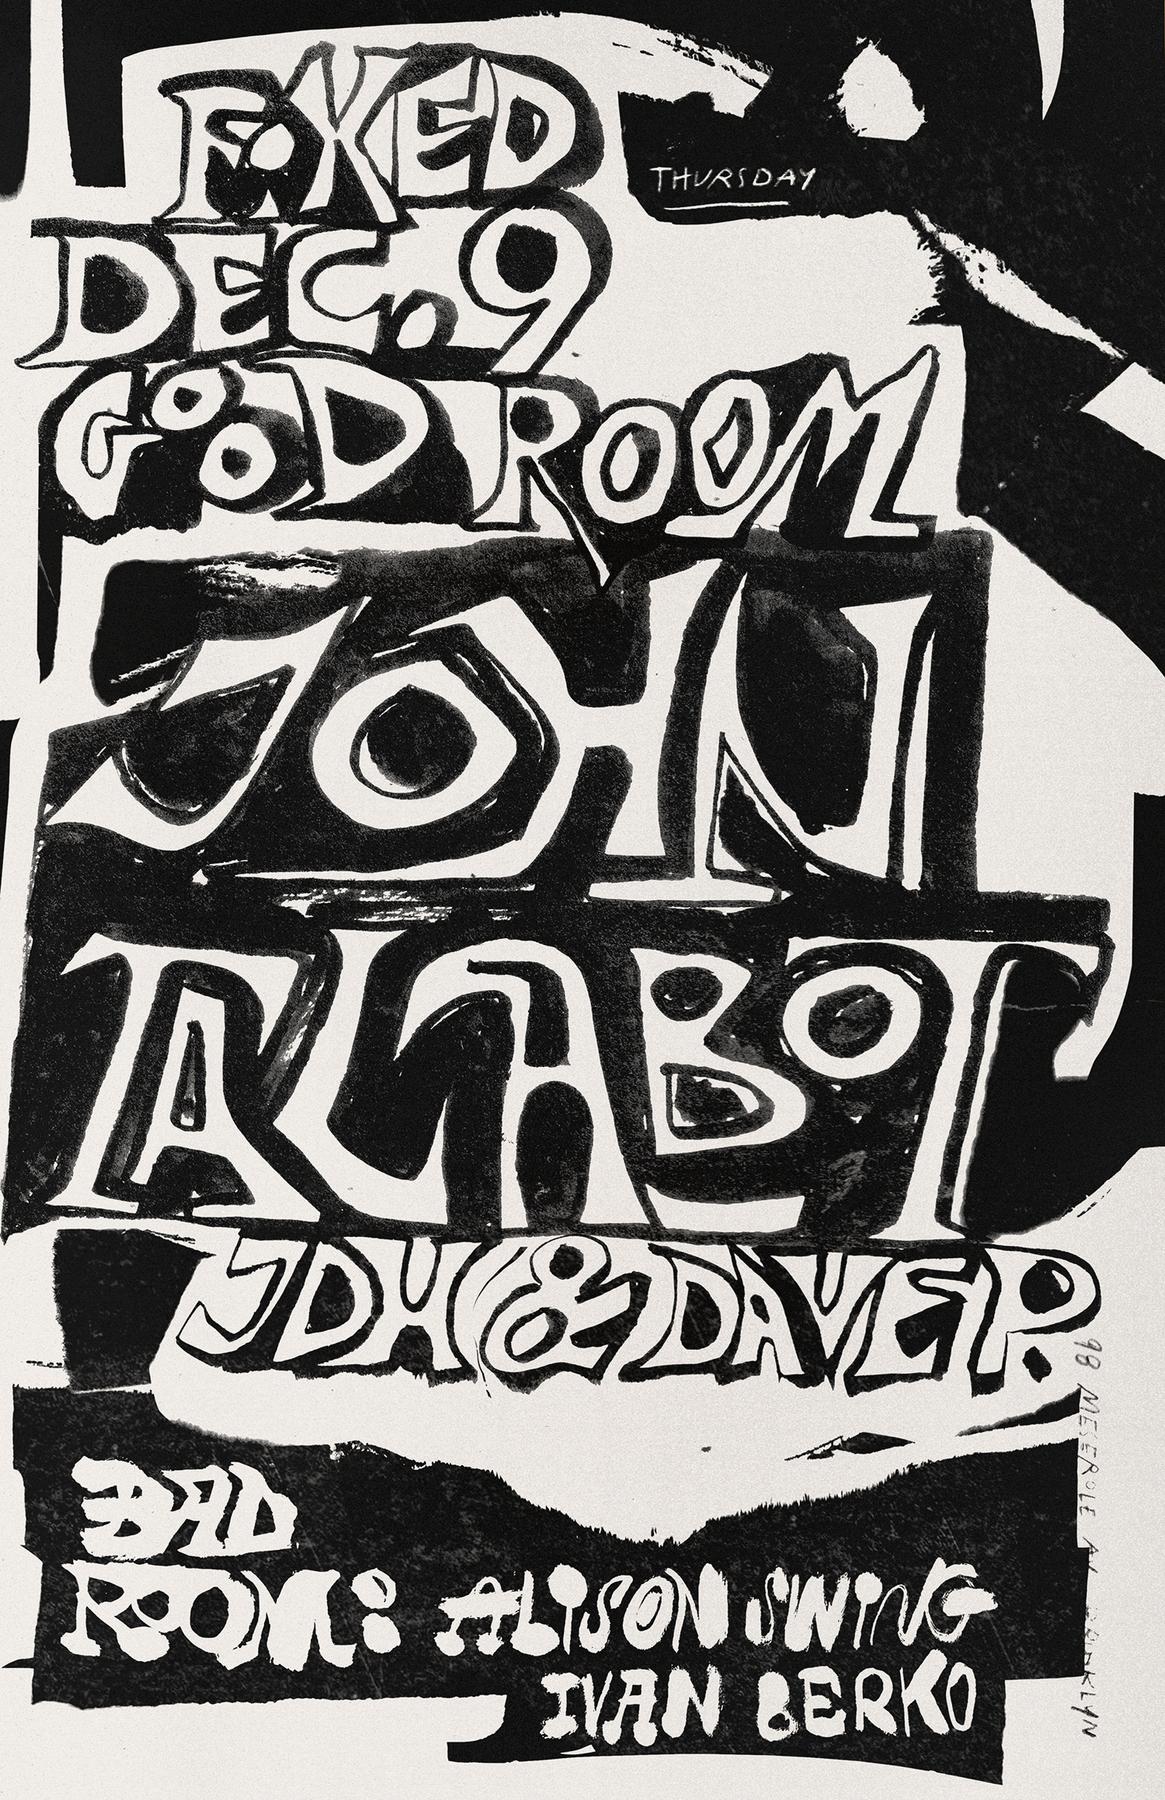 FiXED
THURSDAY
DEC. 9
GOOD ROOM
JOHN
TALABOT
JDH & DAVE P.
98 MESEROLE AV BROOKLYN
BAD
ROOM: ALiSON SWiNG
IVAN BERKO